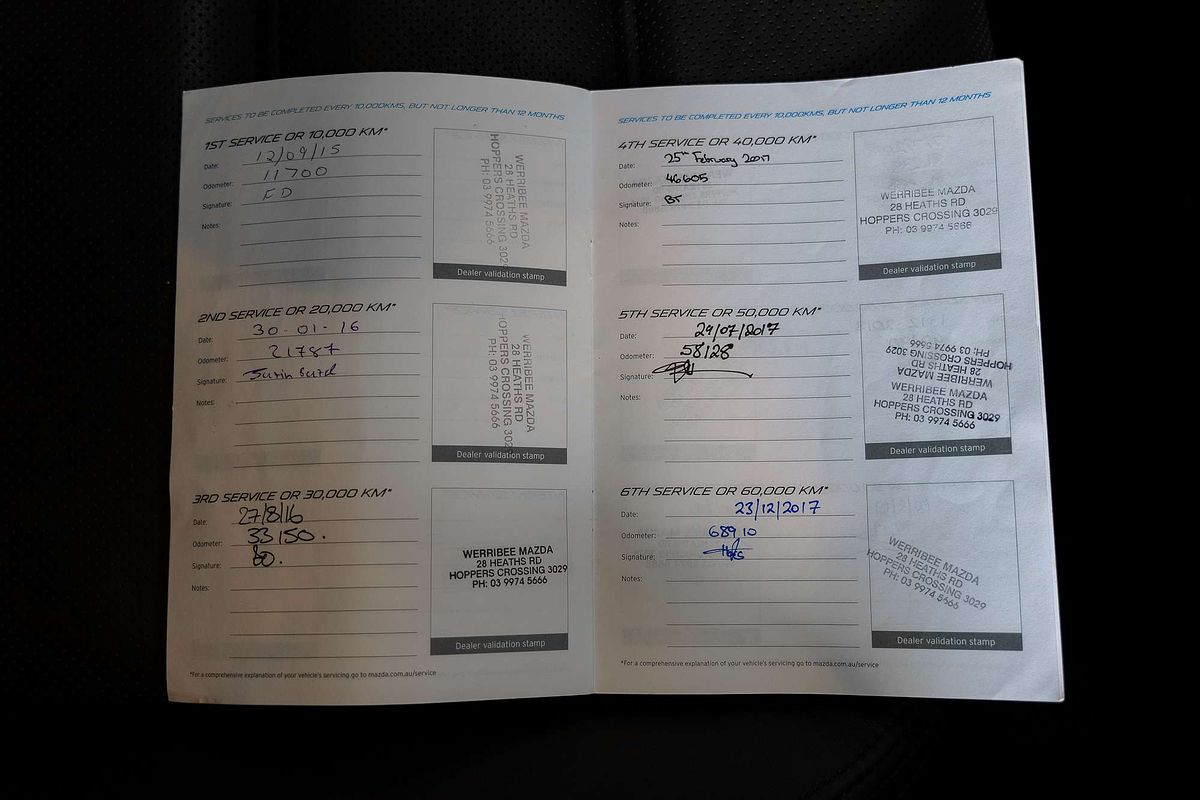 SERVICES TO BE COMPLETED EVERY 10,000KMS, BUT NOT LONGER THAN 12 MONTHS
1ST SERVICE OR 10,000 KM*
Date: 12/09/15
Odometer: 11700
Signature: FD
Notes:
WERRIBEE MAZDA
28 HEATHS RD
HOPPERS CROSSING 302
PH: 03 9974 5666
Dealer validation stamp
2ND SERVICE OR 20,000 KM*
Date: 30-01-16
Odometer: 21787
Signature:
Notes:
WERRIBEE MAZDA
28 HEATHS RD
HOPPERS CROSSING 302
PH: 03 9974 5666
Dealer validation stamp
3RD SERVICE OR 30,000 KM*
Date: 27/8/16
Odometer: 33150.
Signature:
Notes:
WERRIBEE MAZDA
28 HEATHS RD
HOPPERS CROSSING 3029
PH: 03 9974 5666
Dealer validation stamp
*For a comprehensive explanation of your vehicle's servicing go to mazda.com.au/service
SERVICES TO BE COMPLETED EVERY 10,000KMS, BUT NOT LONGER THAN 12 MONTHS
4TH SERVICE OR 40,000 KM*
Date: 25th February 2017
Odometer: 46605
Signature: BT
Notes:
WERRIBEE MAZDA
28 HEATHS RD
HOPPERS CROSSING 3029
PH: 03 9974 5666
Dealer validation stamp
5TH SERVICE OR 50,000 KM*
Date: 29/07/2017
Odometer: 58128
Signature:
Notes:
WERRIBEE MAZDA
28 HEATHS RD
HOPPERS CROSSING 3029
PH: 03 9974 5666
WERRIBEE MAZDA
28 HEATHS RD
HOPPERS CROSSING 3029
PH: 03 9974 5666
Dealer validation stamp
6TH SERVICE OR 60,000 KM*
Date: 23/12/2017
Odometer: 68910
Signature:
Notes:
WERRIBEE MAZDA
28 HEATHS RD
HOPPERS CROSSING 3029
PH: 03 9974 5666
Dealer validation stamp
*For a comprehensive explanation of your vehicle's servicing go to mazda.com.au/service